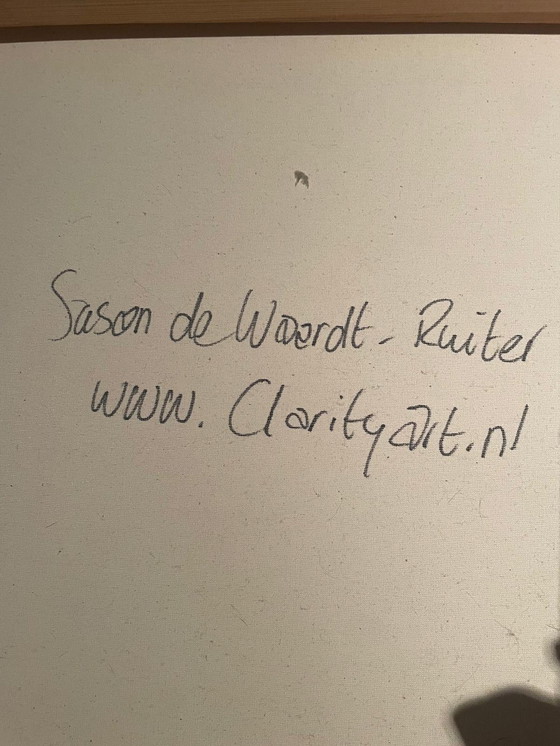 Sason de Waardt - Ruiter
www.Clarityart.nl